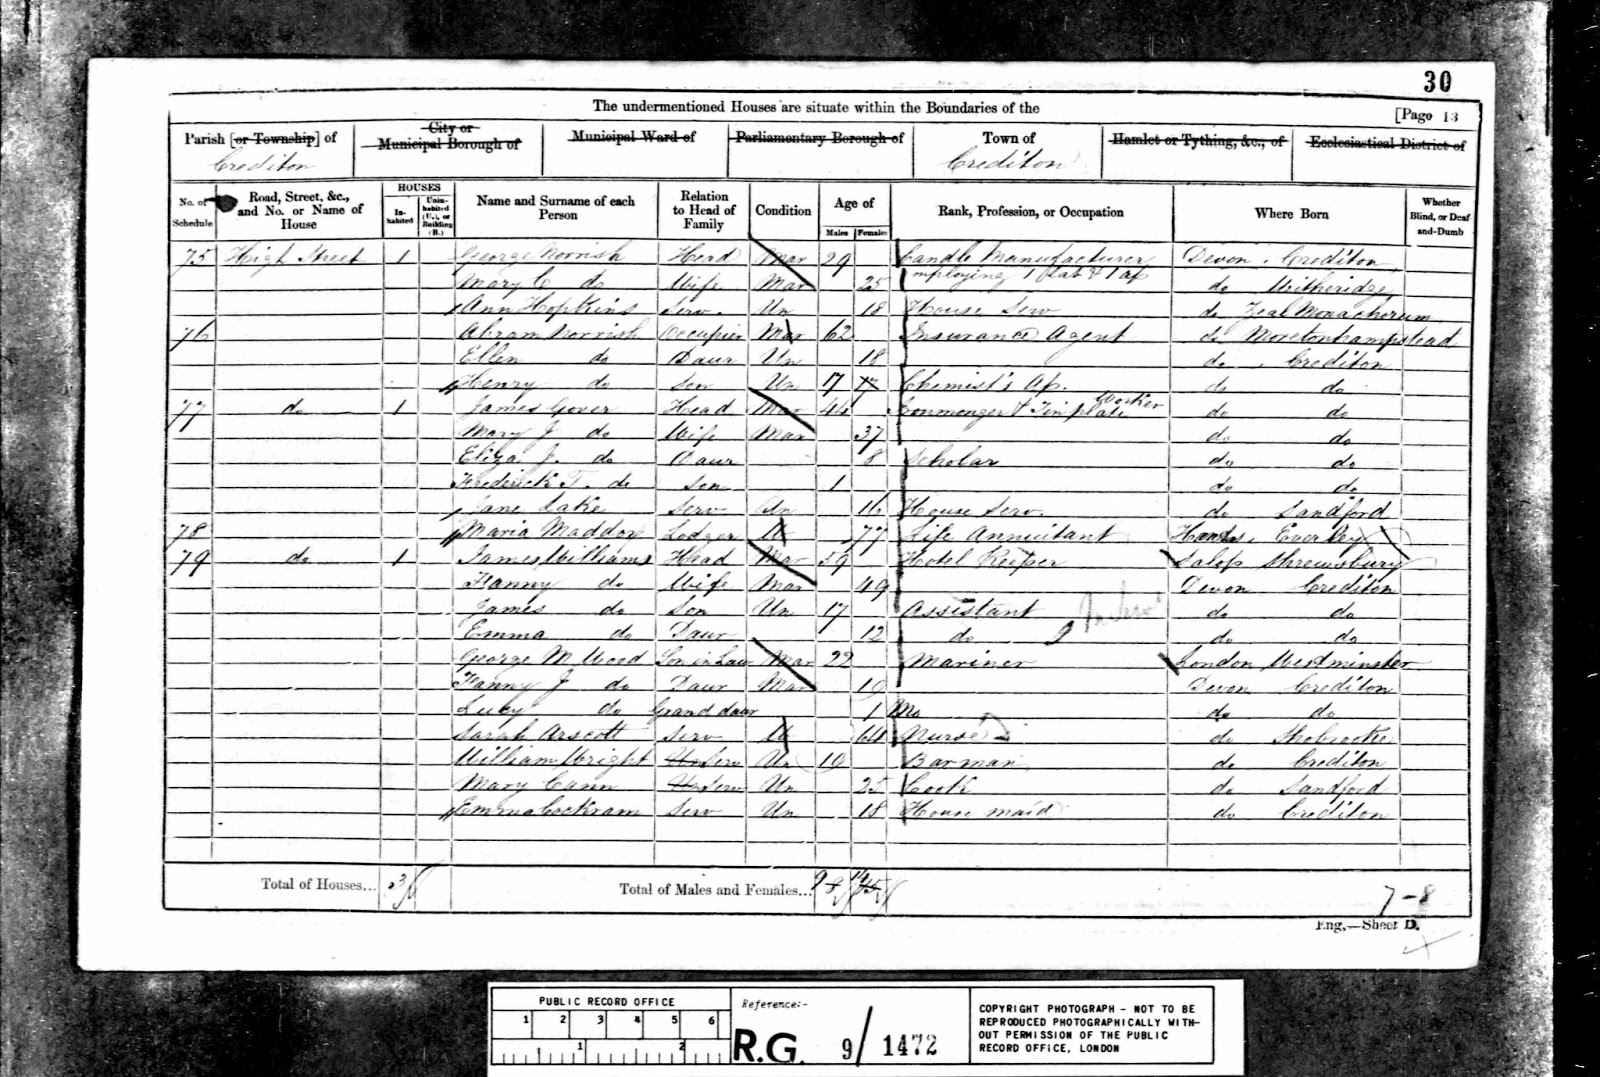 30
The undermentioned Houses are situate within the Boundaries of the
[Page 13
Parish [or Township] of
City or Municipal Borough of
Municipal Ward of
Parliamentary Borough of
Town of
Hamlet or Tything, &c., of
Ecclesiastical District of
Crediton
Crediton
No. of Schedule
Road, Street, &c., and No. or Name of House
HOUSES
In-habited
Unin-habited (U.), or Building (B.)
Name and Surname of each Person
Relation to Head of Family
Condition
Age of
Males
Females
Rank, Profession, or Occupation
Where Born
Whether Blind, or Deaf and-Dumb
75 High Street 1 George Norrish Head Mar 29 Candle Manufacturer Devon. Crediton
employing 1 lab & 1 ap
Mary C do Wife Mar 25 do Witheridge
Ann Hopkins Serv. Un 18 House Serv do Zeal Monachorum
76 Abram Norrish Occupier Mar 62 Insurance Agent do Moretonhampstead
Ellen do Daur Un 18 do Crediton
Henry do Son Un 17 17 Chemist's Ap. do do
77 do 1 James Gover Head Mar 44 Ironmonger & Tin plate Worker do do
Mary J do Wife Mar 37 do do
Eliza J. do Daur 8 Scholar do do
Frederick T. do Son 1 do do
Jane Lake Serv Un 16 House Serv. do Sandford
78 Maria Maddox Lodger U 77 Life Annuitant Hants. Everley
79 do 1 James Williams Head Mar 59 Hotel Keeper Salop Shrewsbury
Fanny do Wife Mar 49 Devon Crediton
James do Son Un 17 Assistant do do
Emma do Daur 12 do do do
George M Wood Son in Law Mar 22 Mariner London Westminster
Fanny J do Daur Mar 19 Devon Crediton
Lucy do Grand daur 1 Mo do do
Sarah Arscott Serv U 64 Nurse do Shobrooke
William Wright Un Serv Un 19 Barman do Crediton
Mary Cann Un Serv Un 25 Cook do Sandford
Emma Cockram Serv Un 18 House maid do Crediton
Total of Houses... 3
Total of Males and Females... 9 8 14 15
7-8
Eng.—Sheet D.
PUBLIC RECORD OFFICE
1 2 3 4 5 6
1 2
Reference:-
R.G. 9/1472
COPYRIGHT PHOTOGRAPH - NOT TO BE
REPRODUCED PHOTOGRAPHICALLY WITH-
OUT PERMISSION OF THE PUBLIC
RECORD OFFICE, LONDON